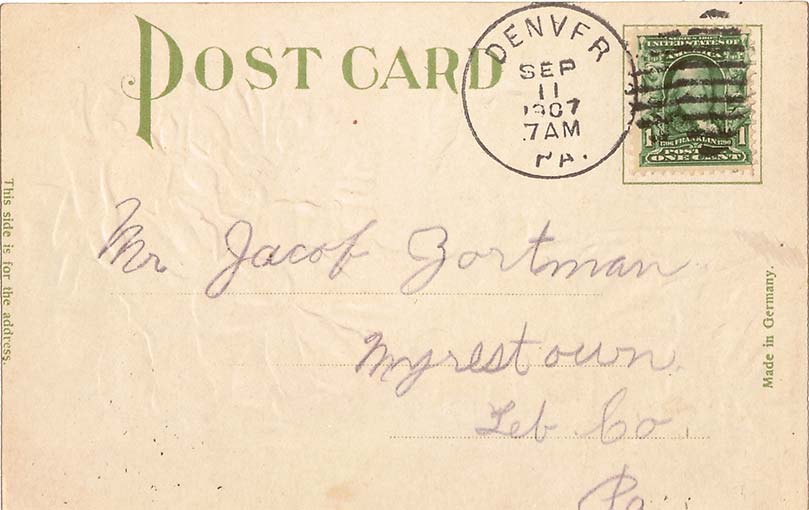 POST CARD
DENVER
SEP
11
1907
7AM
PA.
SERIES 1902
UNITED STATES OF
AMERICA
1706 FRANKLIN 1790
1 POST 1
ONE CENT
This side is for the address.
Mr Jacob Zortman
Myrestown
Leb Co
Pa
Made in Germany.